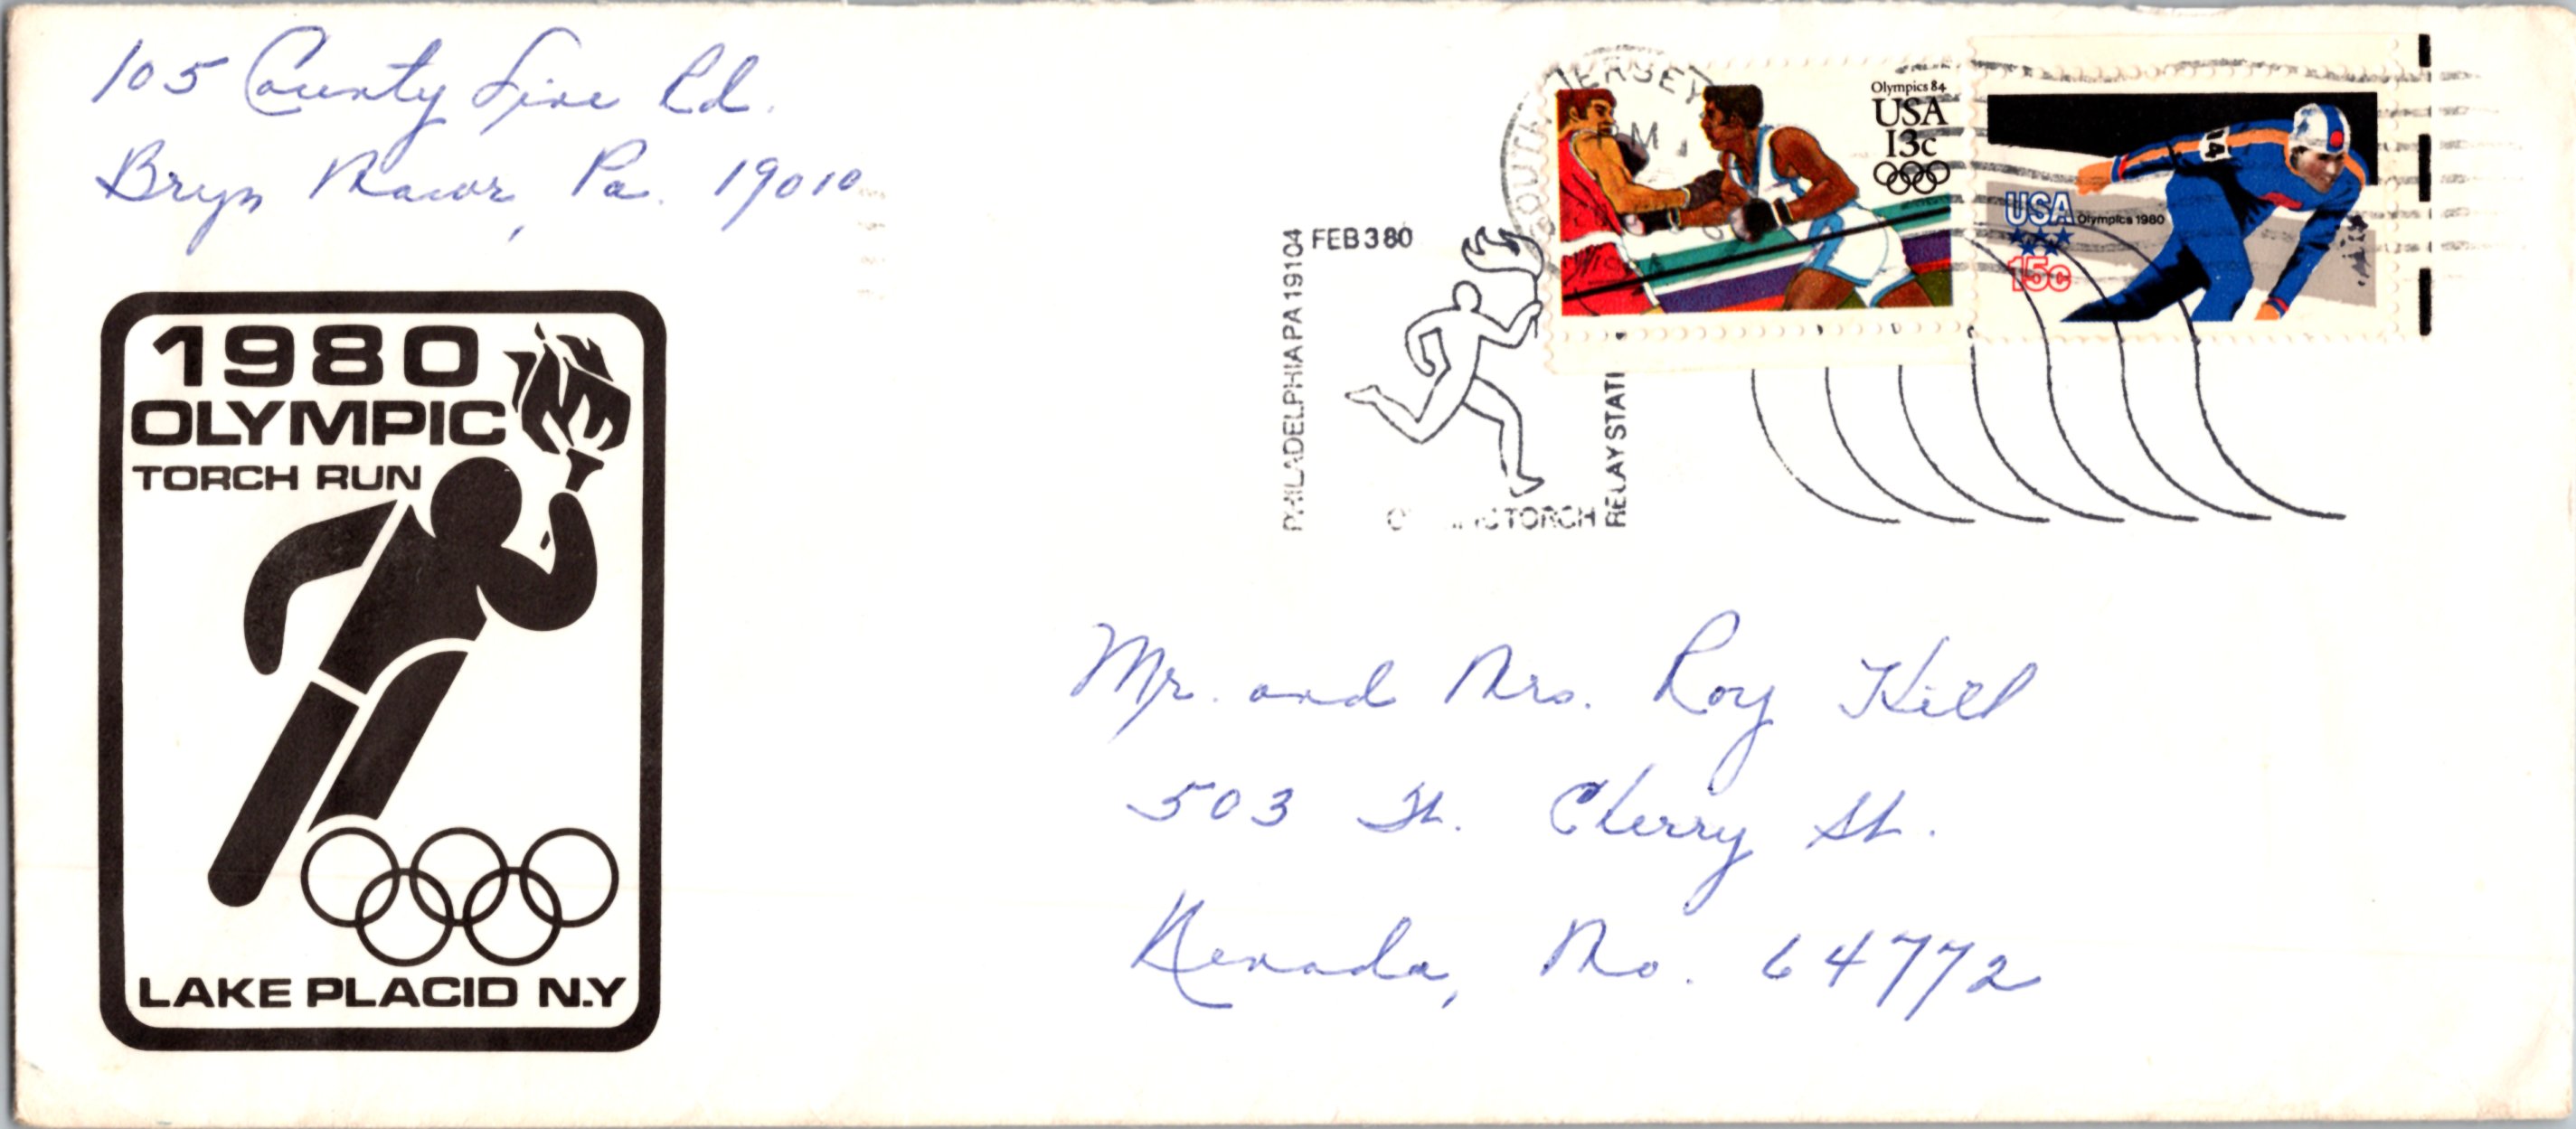 105 County Line Rd.
Bryn Mawr, Pa. 19010
1980
OLYMPIC
TORCH RUN
LAKE PLACID N.Y
PHILADELPHIA PA 19104
FEB 3 80
TORCH
RELAY
JERSEY
Olympics 84
USA
13c
14
USA Olympics 1980
15c
Mr. and Mrs. Roy Hill
503 Cherry St.
Nevada, Mo. 64772